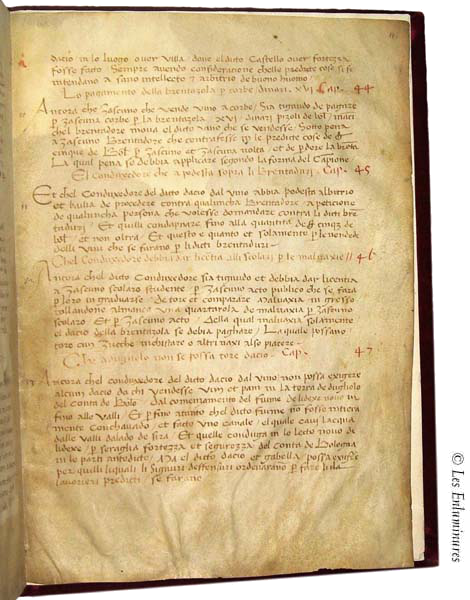 dacio in lo luogo over villa dove el dicto Castello over forteza
fosse facto. Sempre avendo consideratione chelle predicte cose si se
intendano a sano intellecto et arbitrio de buono huomo
Lo pagamento della brentazola p corbe, dinari. xvi. Cap. 44
Ancora che zascuno che vende vino a corbe, sia tignudo de pagare
p zascuna corbe p la brentazola xvi dinari pizoli de bol, inaci
chel brentadore mova el dicto vino che se vendesse. Sotto pena
a zascuno Brentadore che contrafesse i p le predicte cose de
cinque de Bol. p zascuno et zascuna volta, et de perdere la brenta
La qual pena se debbia applicare segondo la forma del Capione
El Conduxedore che a podesta sopra li Brentaduri. Cap. 45
Et chel Conduxedore del dicto dacio dal vino abbia podesta albitrio
et bailia de procedere contra qualuncha Brentadore a petitione
de qualuncha persona che volesse domandare contra li dicti bre
taduri, Et quilli condapnare fino alla quantita de cinqz de
bol et non oltra. Et questo e quanto et solamento p le vendede
delli vini che se farano p li dicti brentaduri
Chel Conduxedore debbia dar licetia alli scolari p le malgaxie 46
Ancora chel dicto Conduxedore sia tignudo et debbia dar licentia
a zascuno scolaro studente, p zascuno acto publico che se fara
p loro in graduarse. De tore et comparare Malvaxia in grosso
tollandone almanco una quartarola de malvaxia p zascuno
scolaro Et p zascuno acto. Della qual malvaxia solamente
el dacio della brentazola se debia paghare, La quale possano
tore cum zucche inchistare o altri vaxi also piacere.
Che a dugliolo non se possa tore dacio. Cap. 47
Ancora chel conduxedore del dicto dacio dal vino non possa exigere
alcun dacio da chi vendesse vin et pani in la terra de dugliolo
del Conta de Bolo. dal comenzamento del fiume de lidexe novo in
fino allo valli. Et p fino atanto chel dicto fiume no fosse intiera
mente Conchavado, et facto uno canale, el quale cavi lacqua
dalle valli dalado de sira. Et quelle conduga in lo lecto novo de
lidexe, p seraglia fortezza et segurezza del Conta de Bologna
in le parti antedicte, Ma el dicto dacio et gabella possa exigere
per quilli liquali li Signuri deffensuri ordenarano p fare li la
lavorieri predicti se farano
© Les Enluminures